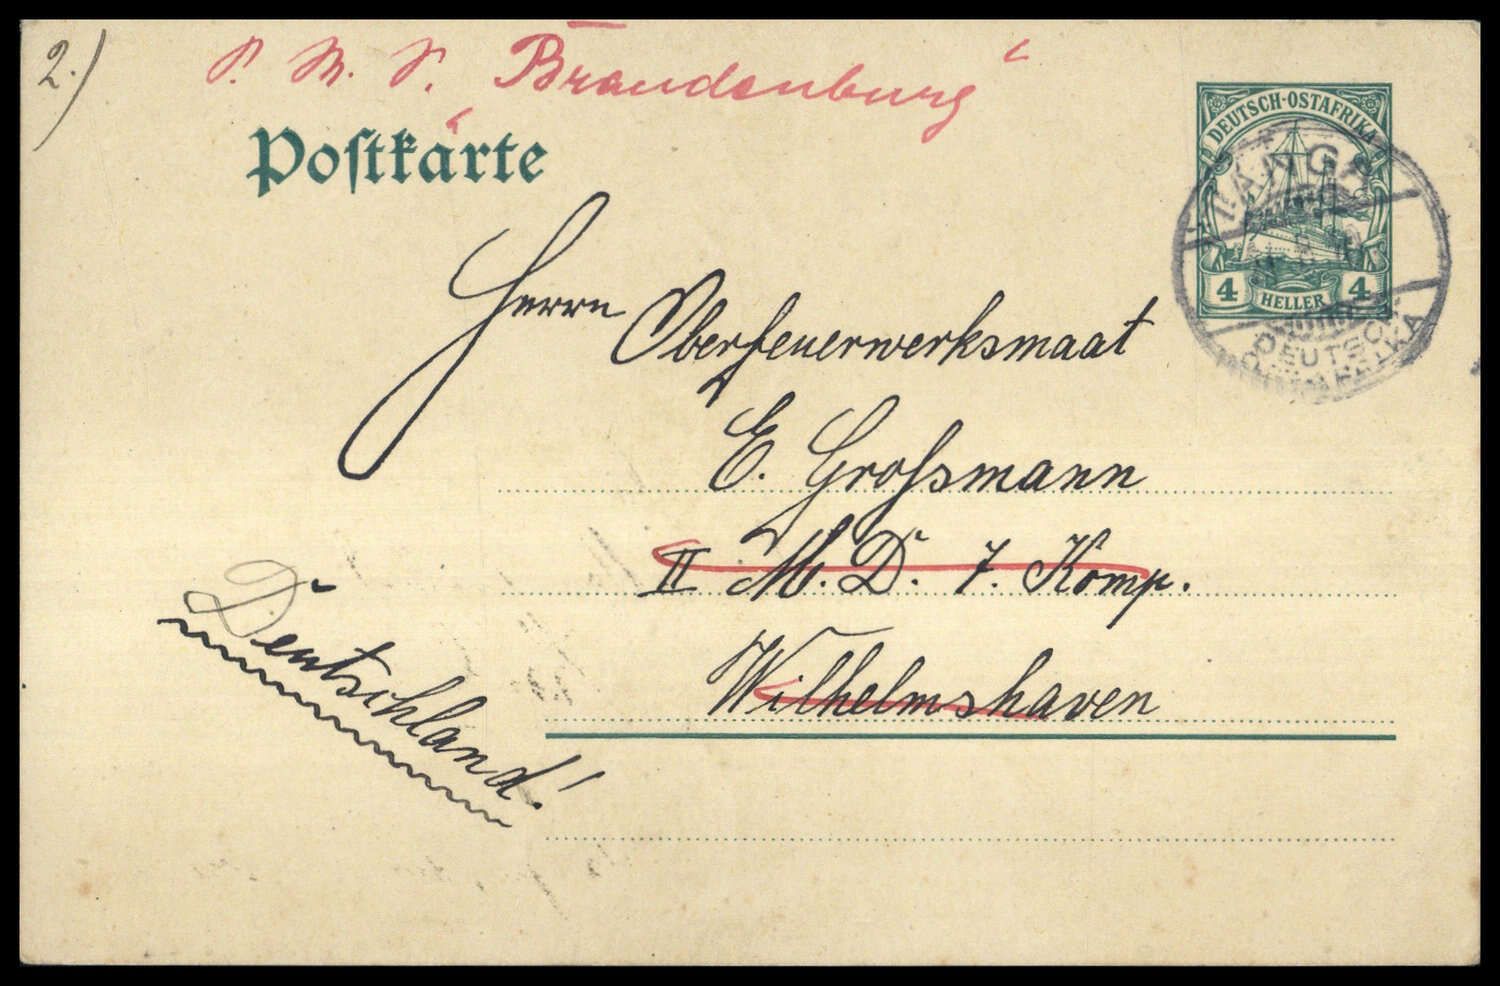 2.)
S. M. S. Brandenburg"
Postkarte
DEUTSCH-OSTAFRIKA
4 HELLER 4
TANGA
DEUTSCH
OSTAFRIKA
Herrn Oberfeuerwerksmaat
E. Großmann
II M. D. 7. Komp.
Wilhelmshaven
Deutschland!